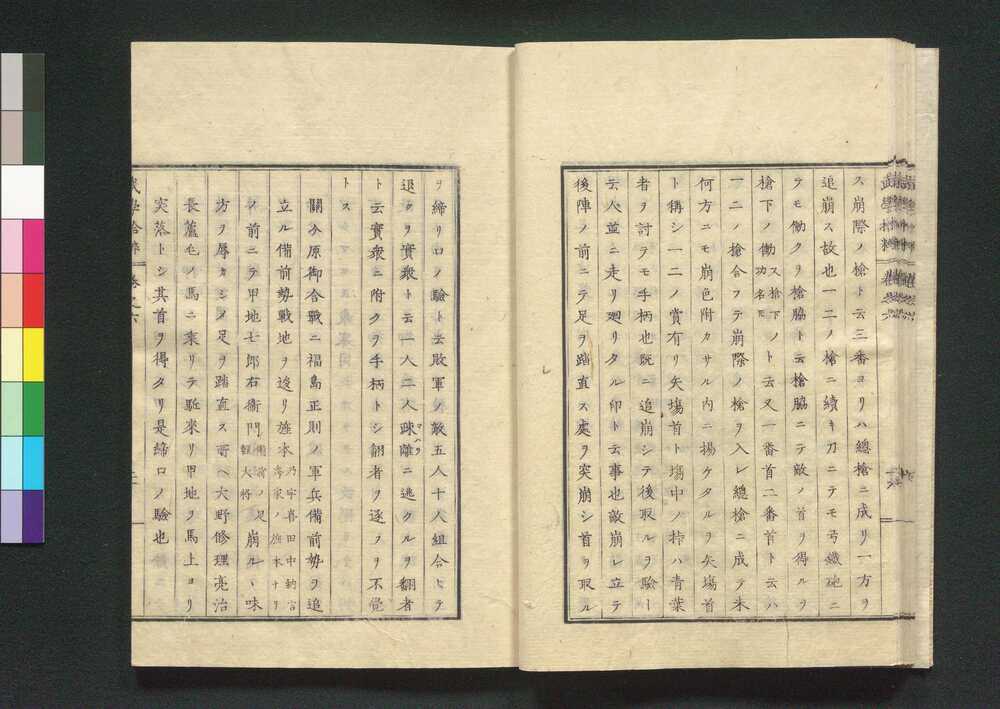 ス崩際ノ槍ト云三番ヨリハ總槍ニ成リ一方ヲ
追崩ス故也一二ノ槍ニ續キ刀ニテモ弓鐵砲ニ
テモ働クヲ槍脇ト云槍脇ニテ敵ノ首ヲ得ルヲ
槍下ノ働又槍下ノ功名トト云又一番首二番首ト云ハ
一二ノ槍合フテ崩際ノ槍ヲ入レ總槍ニ成テ未
何方ニモ崩色附カサル内ニ揚ケタルヲ矢塲首
ト稱シ一二ノ賞有リ矢塲首ト塲中ノ持ハ青葉
者ヲ討テモ手柄也既ニ追崩シテ後取ルヲ驗ト
云人並ニ走リ廻リタル印ト云事也敵崩レ立テ
後陣ノ前ニテ足ヲ踏直ス處ヲ突崩シ首ヲ取ル
ヲ締リ口ノ驗ト云敗軍ノ敵五人十人組合ヒテ
退クヲ實衆ト云一人二人疎離ニ逃クルヲ翻者
ト云實衆ニ附クヲ手柄トシ翻者ヲ逐フヲ不覺
トス
關ケ原御合戰ニ福島正則ノ軍兵備前勢ヲ追
立ル備前勢戰地ヲ逡リ旗本乃宇喜田中納言秀家ノ旗本ナリ
ノ前ニテ甲地七郎右衞門備前ノ足輕大將崩ルヽ味
方ヲ辱カシメ足ヲ踏直ス所ヘ大野修理亮治
長蘆毛ノ馬ニ乘リテ駈來リ甲地ヲ馬上ヨリ
突落トシ其首ヲ得タリ是締口ノ驗也